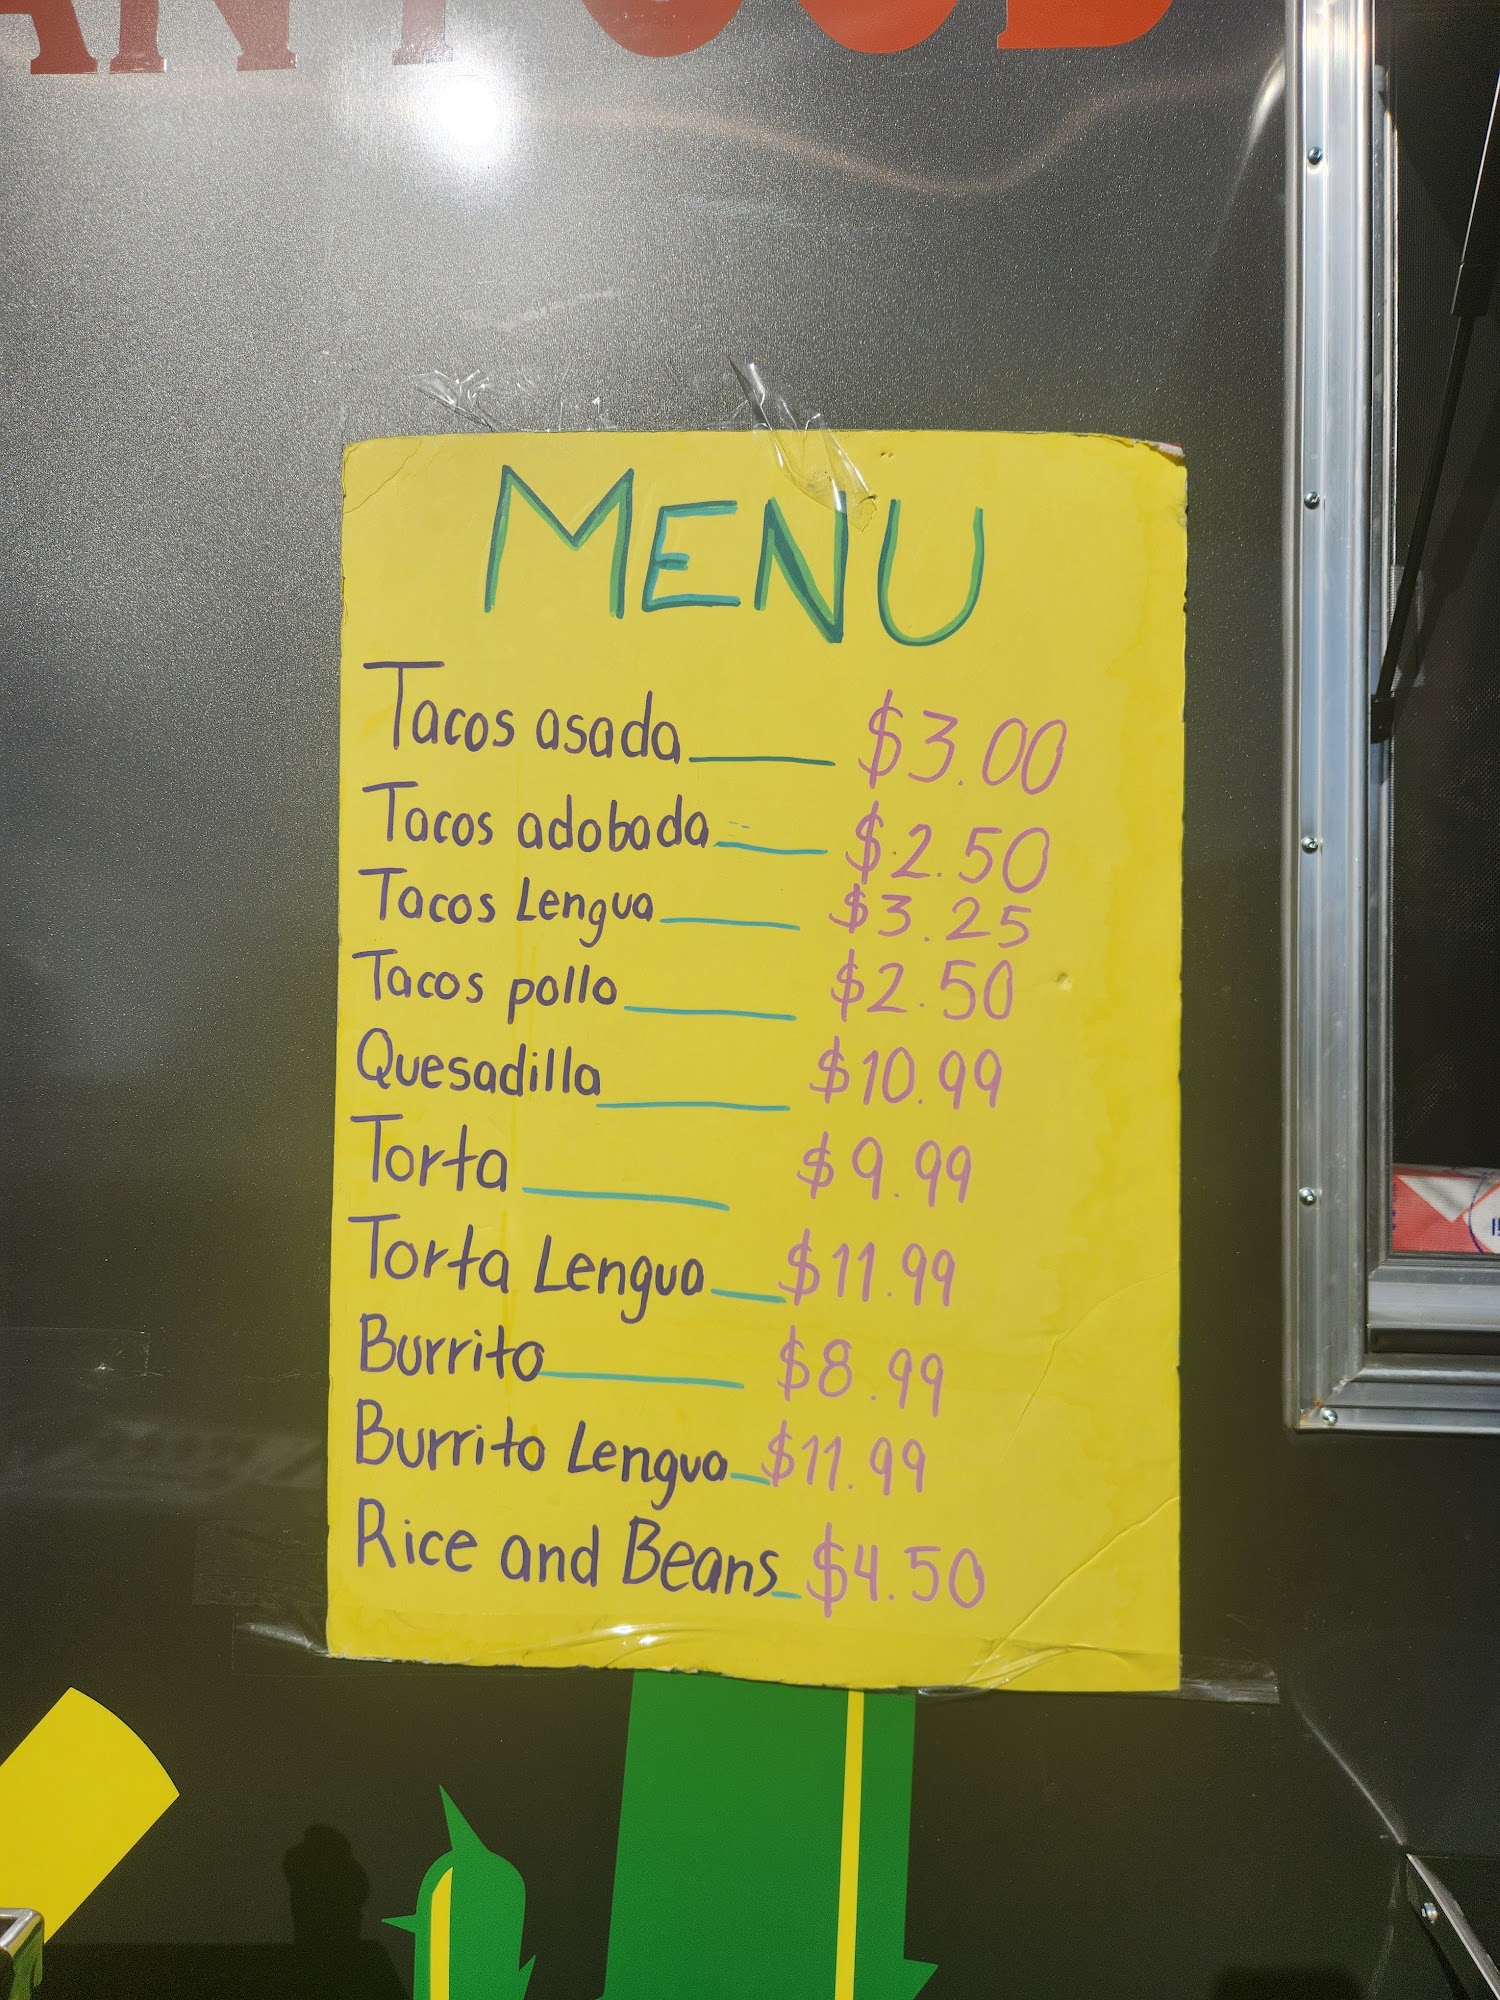 AN FOOD
MENU
Tacos asada $3.00
Tacos adobada $2.50
Tacos Lengua $3.25
Tacos pollo $2.50
Quesadilla $10.99
Torta $9.99
Torta Lengua $11.99
Burrito $8.99
Burrito Lengua $11.99
Rice and Beans $4.50